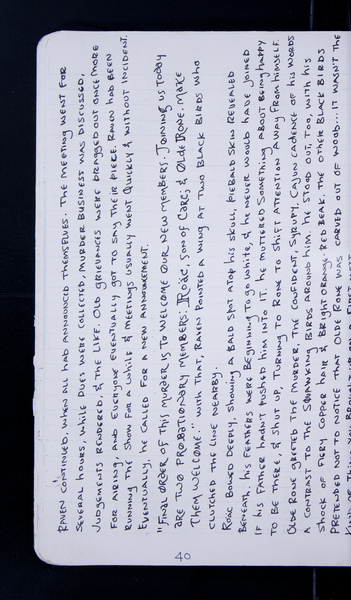 RAVEN CONTINUED, WHEN ALL HAD ANNOUNCED THEMSELVES. THE MEETING WENT FOR
SEVERAL HOURS, WHILE DUES WERE COLLECTED, MURDER BUSINESS WAS DISCUSSED,
JUDGEMENTS RENDERED, & THE LIKE. OLD GRIEVANCES WERE DRAGGED OUT ONCE MORE
FOR AIRING, AND EVERYONE EVENTUALLY GOT TO SAY THEIR PIECE. RAVEN HAD BEEN
RUNNING THE SHOW FOR A WHILE & MEETINGS USUALLY WENT QUICKLY & WITHOUT INCIDENT.
EVENTUALLY, HE CALLED FOR A NEW ANNOUNCEMENT.
"FINAL ORDER OF THIS MURDER IS TO WELCOME OUR NEW MEMBERS. JOINING US TODAY
ARE TWO PROBATIONARY MEMBERS: ROÄC, SON OF CARC; & OLDE RONE. MAKE
THEM WELCOME." WITH THAT, RAVEN POINTED A WING AT TWO BLACK BIRDS WHO
CLUTCHED THE LINE NEARBY.
ROÄC BOWED DEEPLY, SHOWING A BALD SPOT ATOP HIS SKULL, PIEBALD SKIN REVEALED
BENEATH. HIS FEATHERS WERE BEGINNING TO GO WHITE, & HE NEVER WOULD HAVE JOINED
IF HIS FATHER HADN'T PUSHED HIM INTO IT. HE MUTTERED SOMETHING ABOUT BEING HAPPY
TO BE THERE, & SHUT UP, TURNING TO RONE TO SHIFT ATTENTION AWAY FROM HIMSELF.
OLDE RONE GREETED THE MURDER, THE CONFIDENT, SYRUPY, CAJUN CADENCE OF HIS WORDS
A CONTRAST TO THE SQUAWKING BIRDS AROUND HIM. HE STOOD OUT, TOO, WITH HIS
SHOCK OF FIERY COPPER HAIR & BRIGHT ORANGE-RED BEAK. THE OTHER BLACK BIRDS
PRETENDED NOT TO NOTICE THAT OLDE RONE WAS CARVED OUT OF WOOD... IT WASN'T THE
40